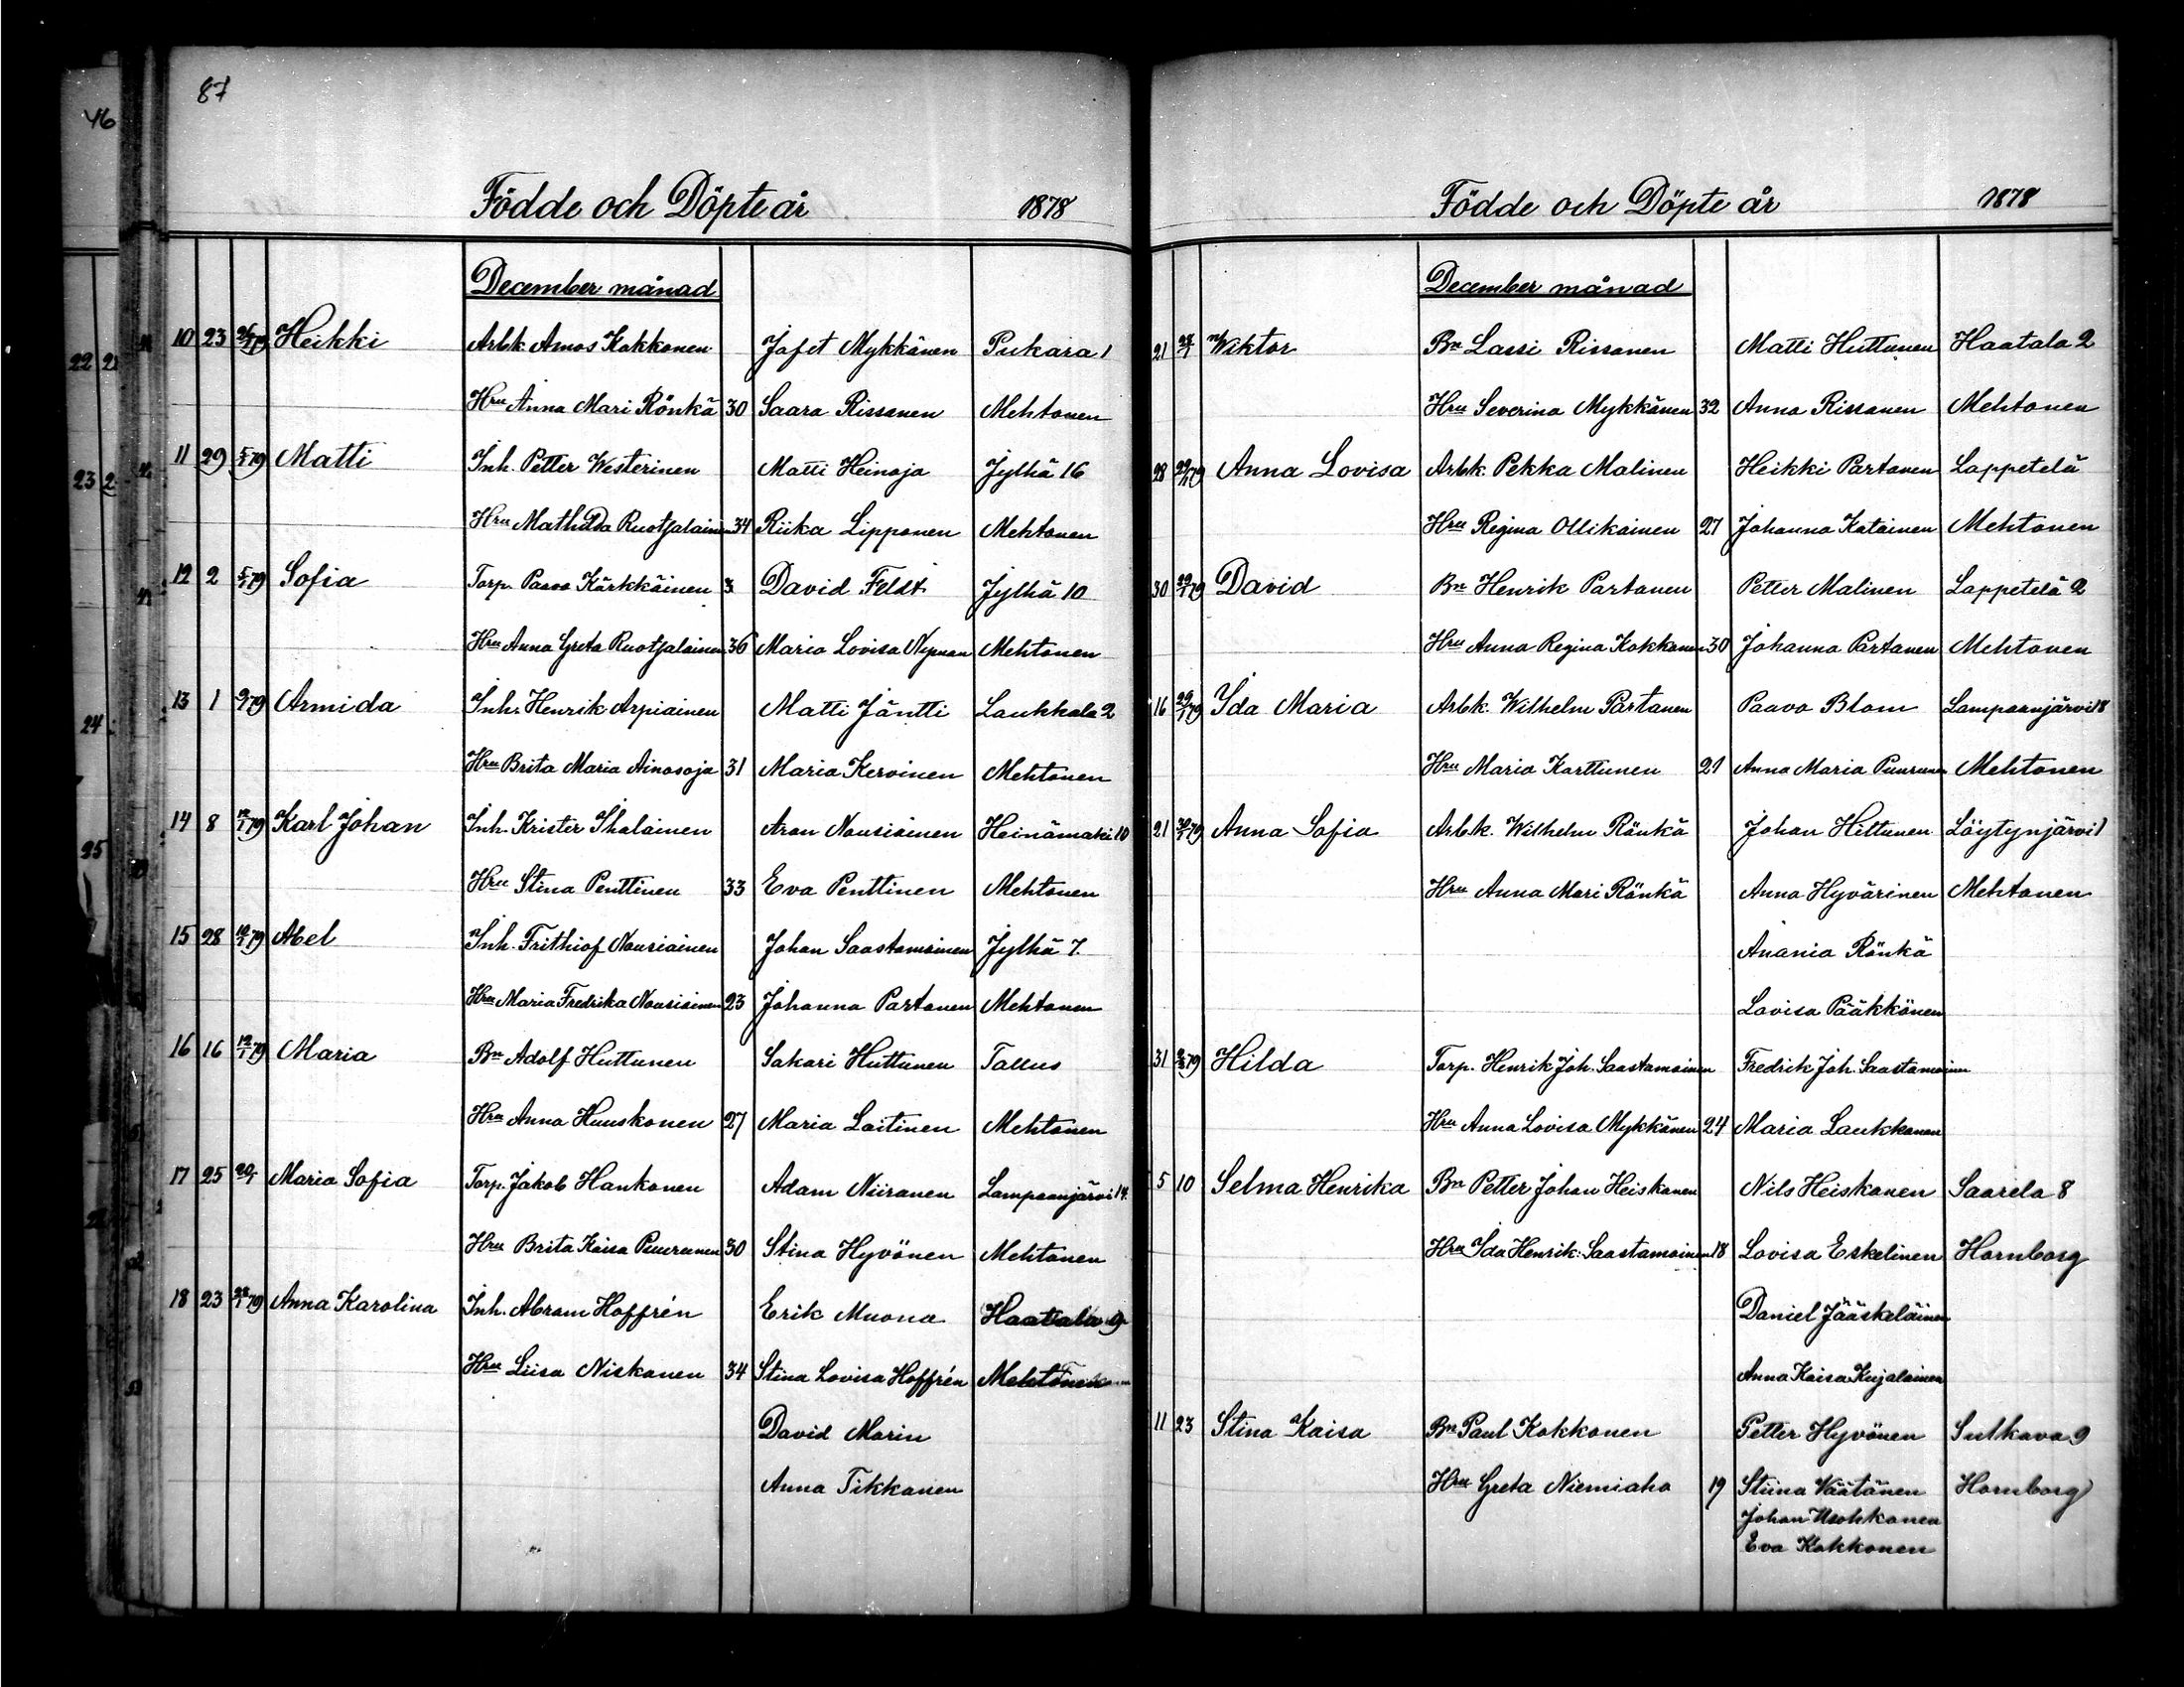 87
46
Födde och Döpte år 1878
December månad
10 23 Heikki Arbk. Amos Kokkonen Jafet Mykkänen Pukara 1
Hru Anna Mari Rönkä 30 Saara Rissanen Mehtonen
11 29 5/1 79 Matti Inh. Petter Westerinen Matti Heinoja Jylhä 16
Hru Mathilda Ruotsalainen 34 Riika Lipponen Mehtonen
12 2 5/1 79 Sofia Torp. Paavo Kärkkäinen David Feldt Jylhä 10
Hru Anna Greta Ruotsalainen 36 Maria Lovisa Nyman Mehtonen
13 1 79 Armida Inh. Henrik Arpiainen Matti Jäntti Laukkala 2
Hru Brita Maria Ainosoja 31 Maria Kervinen Mehtonen
14 8 12/1 79 Karl Johan Inh. Krister Ihalainen Aron Nousiainen Heinämäki 10
Hru Stina Penttinen 33 Eva Penttinen Mehtonen
15 28 79 Abel Inh. Frithiof Nousiainen Johan Saastamoinen Jylhä 7.
Hru Maria Fredrika Nousiainen 23 Johanna Partanen Mehtonen
16 16 19/1 79 Maria Bn Adolf Huttunen Sakari Huttunen Tallus
Hru Anna Huuskonen 27 Maria Laitinen Mehtonen
17 25 20/1 Maria Sofia Torp. Jakob Hankonen Adam Niiranen Lampaanjärvi 14.
Hru Brita Kaisa Puurunen 30 Stina Hyvönen Mehtonen
18 23 28/1 79 Anna Karolina Inh. Abram Hoffrén Erik Muona Haatala 9
Hru Liisa Niskanen 34 Stina Lovisa Hoffrén Mehtonen
David Morin
Anna Tikkanen
Födde och Döpte år 1878
December månad
21 27/1 Wiktor Bn Lassi Rissanen Matti Huttunen Haatala 2
Hru Severina Mykkänen 32 Anna Rissanen Mehtonen
28 29/1 79 Anna Lovisa Arbk. Pekka Malinen Heikki Partanen Lappetelä
Hru Regina Ollikainen 27 Johanna Katainen Mehtonen
30 29/1 79 David Bn Henrik Partanen Petter Malinen Lappetelä 2
Hru Anna Regina Kokkonen 30 Johanna Partanen Mehtonen
16 29/1 79 Ida Maria Arbk. Wilhelm Partanen Paavo Blom Lampaanjärvi 18
Hru Maria Karttunen 21 Anna Maria Puurunen Mehtonen
21 30/1 79 Anna Sofia Arbk. Wilhelm Rönkä Johan Hiltunen Löytynjärvi 1
Hru Anna Mari Rönkä Anna Hyvärinen Mehtonen
Anania Rönkä
Lovisa Pääkkönen
31 79 Hilda Torp. Henrik Joh. Saastamoinen Fredrik Joh. Saastamoinen
Hru Anna Lovisa Mykkänen 24 Maria Laukkanen
5 10 Selma Henrika Bn Petter Johan Heiskanen Nils Heiskanen Saarela 8
Hru Ida Henrik: Saastamoinen 18 Lovisa Eskelinen Hornborg
Daniel Jääskeläinen
Anna Kaisa Kujalainen
11 23 Stina Kaisa Bn Paul Kokkonen Petter Hyvönen Sulkava 9
Hru Greta Niemiaho 19 Stiina Väätänen Hornborg
Johan
Eva Kokkonen